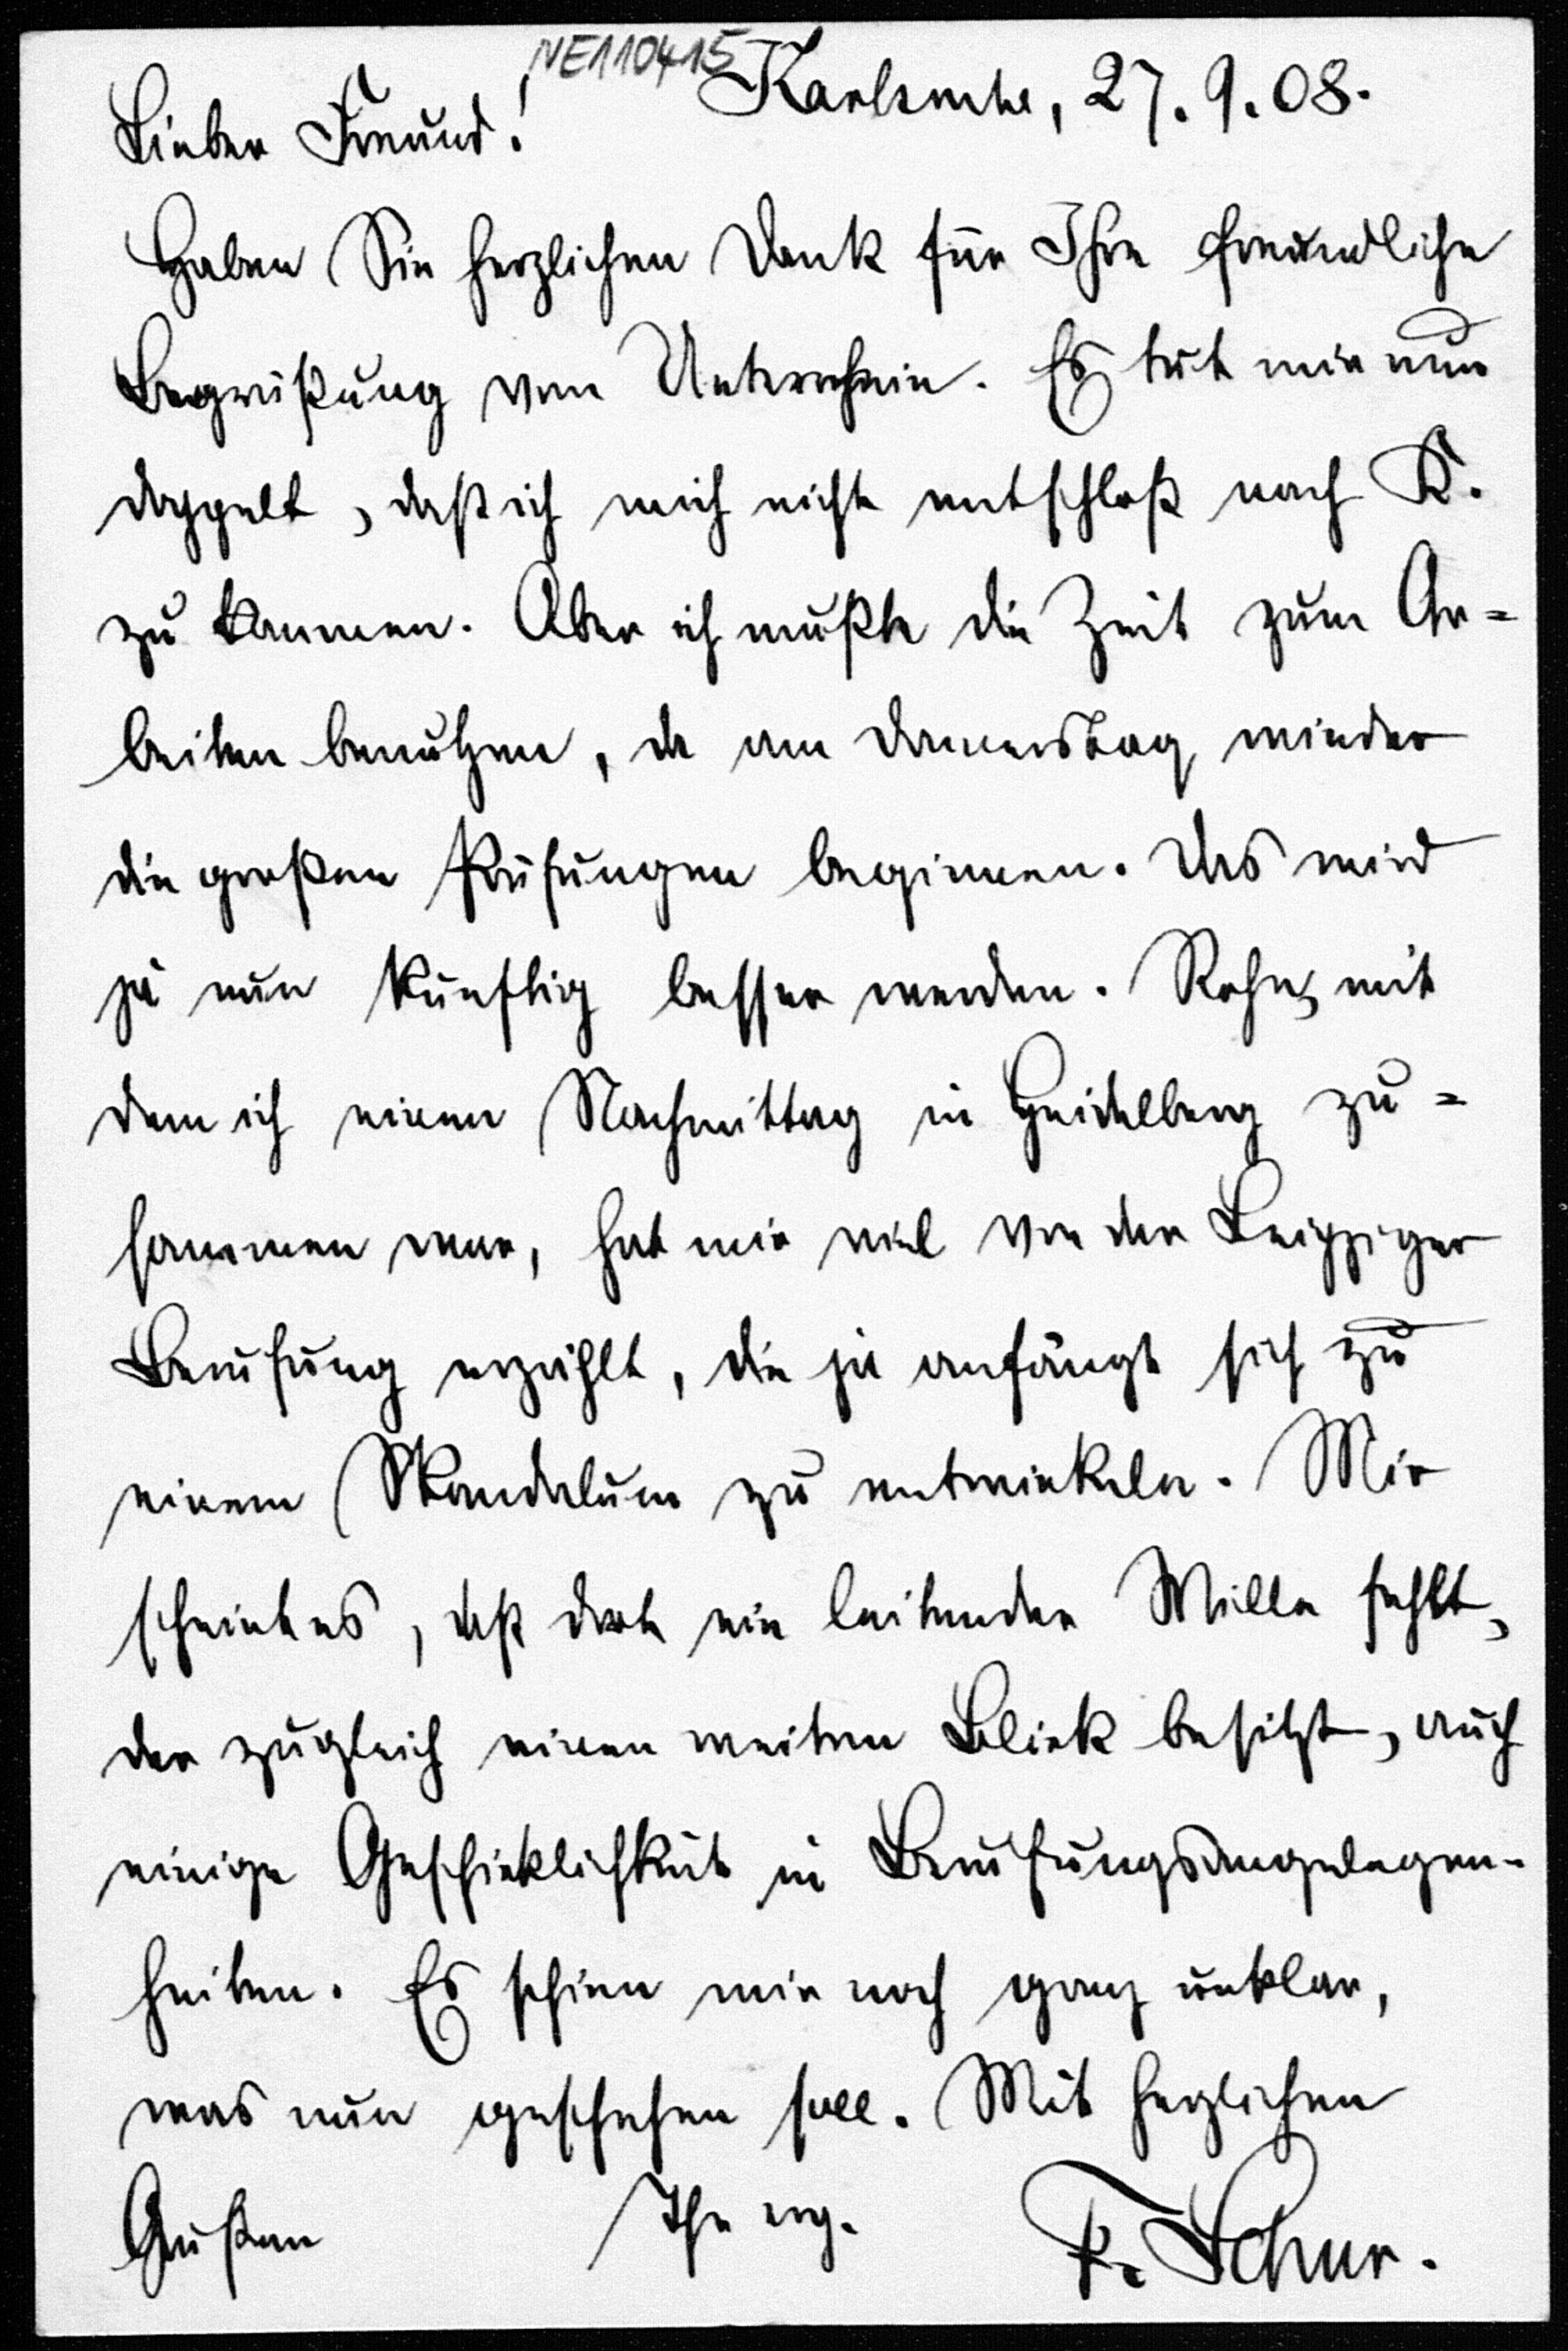 NE110415
Karlsruhe, 27. 9. 08.
Lieber Freund!
Haben Sie herzlichen Dank für Ihre freundliche
Begrüßung vom Unterrhein. Es tut mir nun
doppelt, daß ich mich nicht entschloß nach K.
zu kommen. Aber ich mußte die Zeit zum Ar=
beiten benutzen, da am Donnerstag wieder
die großen Prüfungen beginnen. Das wird
ja nun künftig besser werden. Rohn, mit
dem ich einen Nachmittag in Heidelberg zu=
sammen war, hat mir viel von der Leipziger
Berufung erzählt, die ja anfängt sich zu
einem Skandalum zu entwickeln. Mir
scheint es, daß dort ein leitender Wille fehlt,
der zugleich einen weiten Blick besitzt, auch
einige Geschicklichkeit in Berufungsangelegen-
heiten. Es schien mir noch ganz unklar,
was nun geschehen soll. Mit herzlichen
Grüßen Ihr erg. F. Schur.